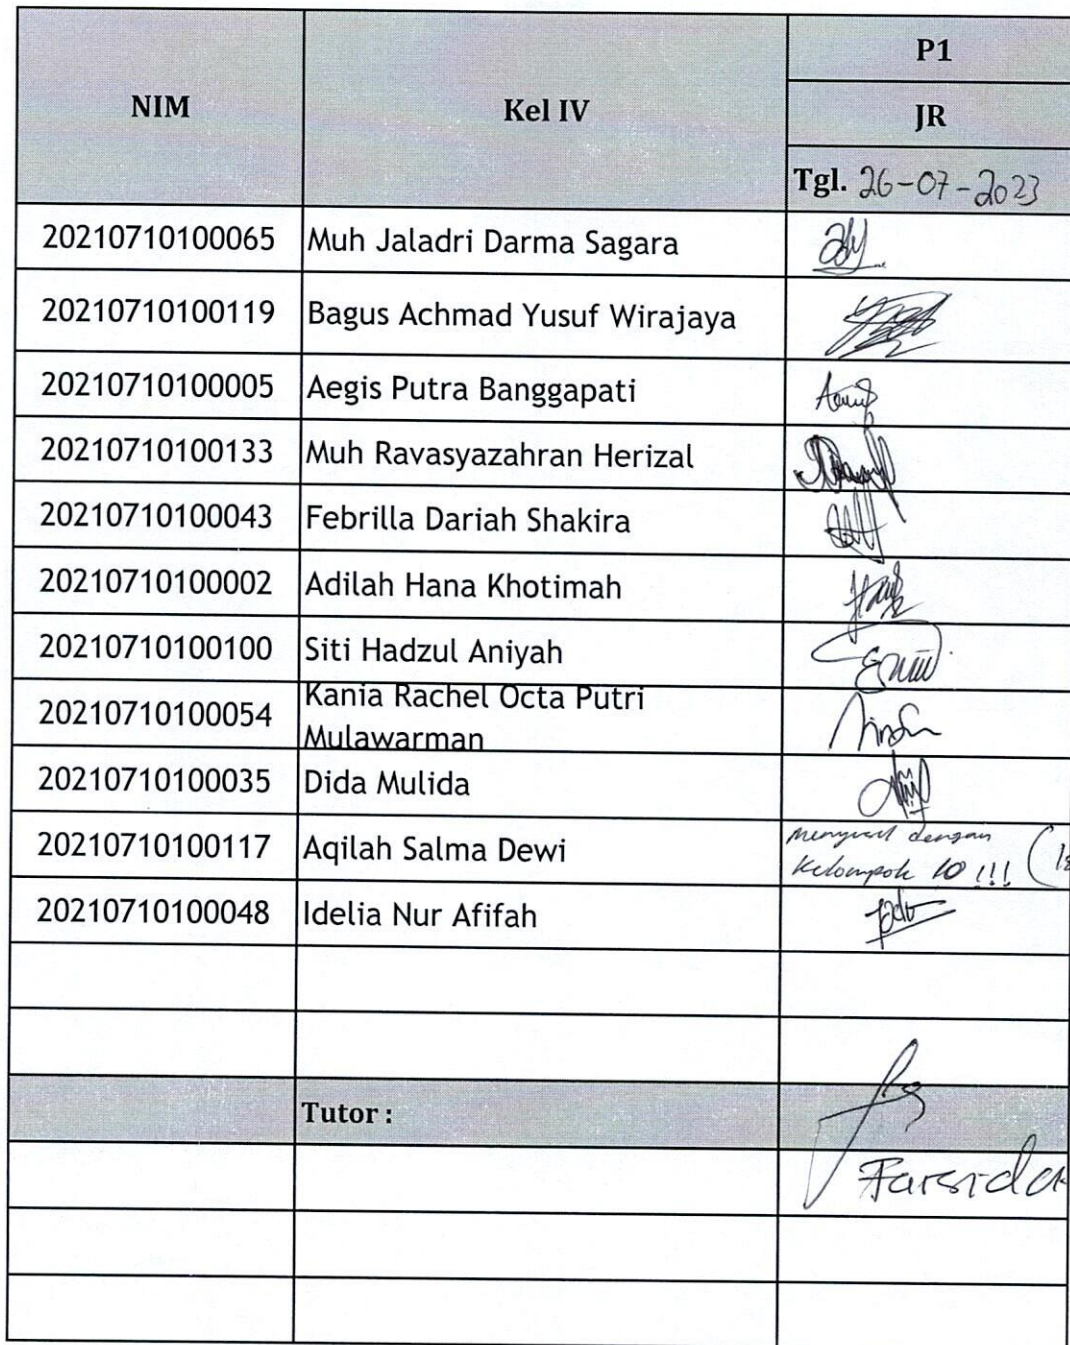 NIM
Kel IV
P1
JR
Tgl. 26-07-2023
20210710100065 Muh Jaladri Darma Sagara
20210710100119 Bagus Achmad Yusuf Wirajaya
20210710100005 Aegis Putra Banggapati
20210710100133 Muh Ravasyazahran Herizal
20210710100043 Febrilla Dariah Shakira
20210710100002 Adilah Hana Khotimah
20210710100100 Siti Hadzul Aniyah
20210710100054 Kania Rachel Octa Putri
Mulawarman
20210710100035 Dida Mulida
20210710100117 Aqilah Salma Dewi
dengan
Kelompok 10 !!!
20210710100048 Idelia Nur Afifah
Tutor :
Farsida